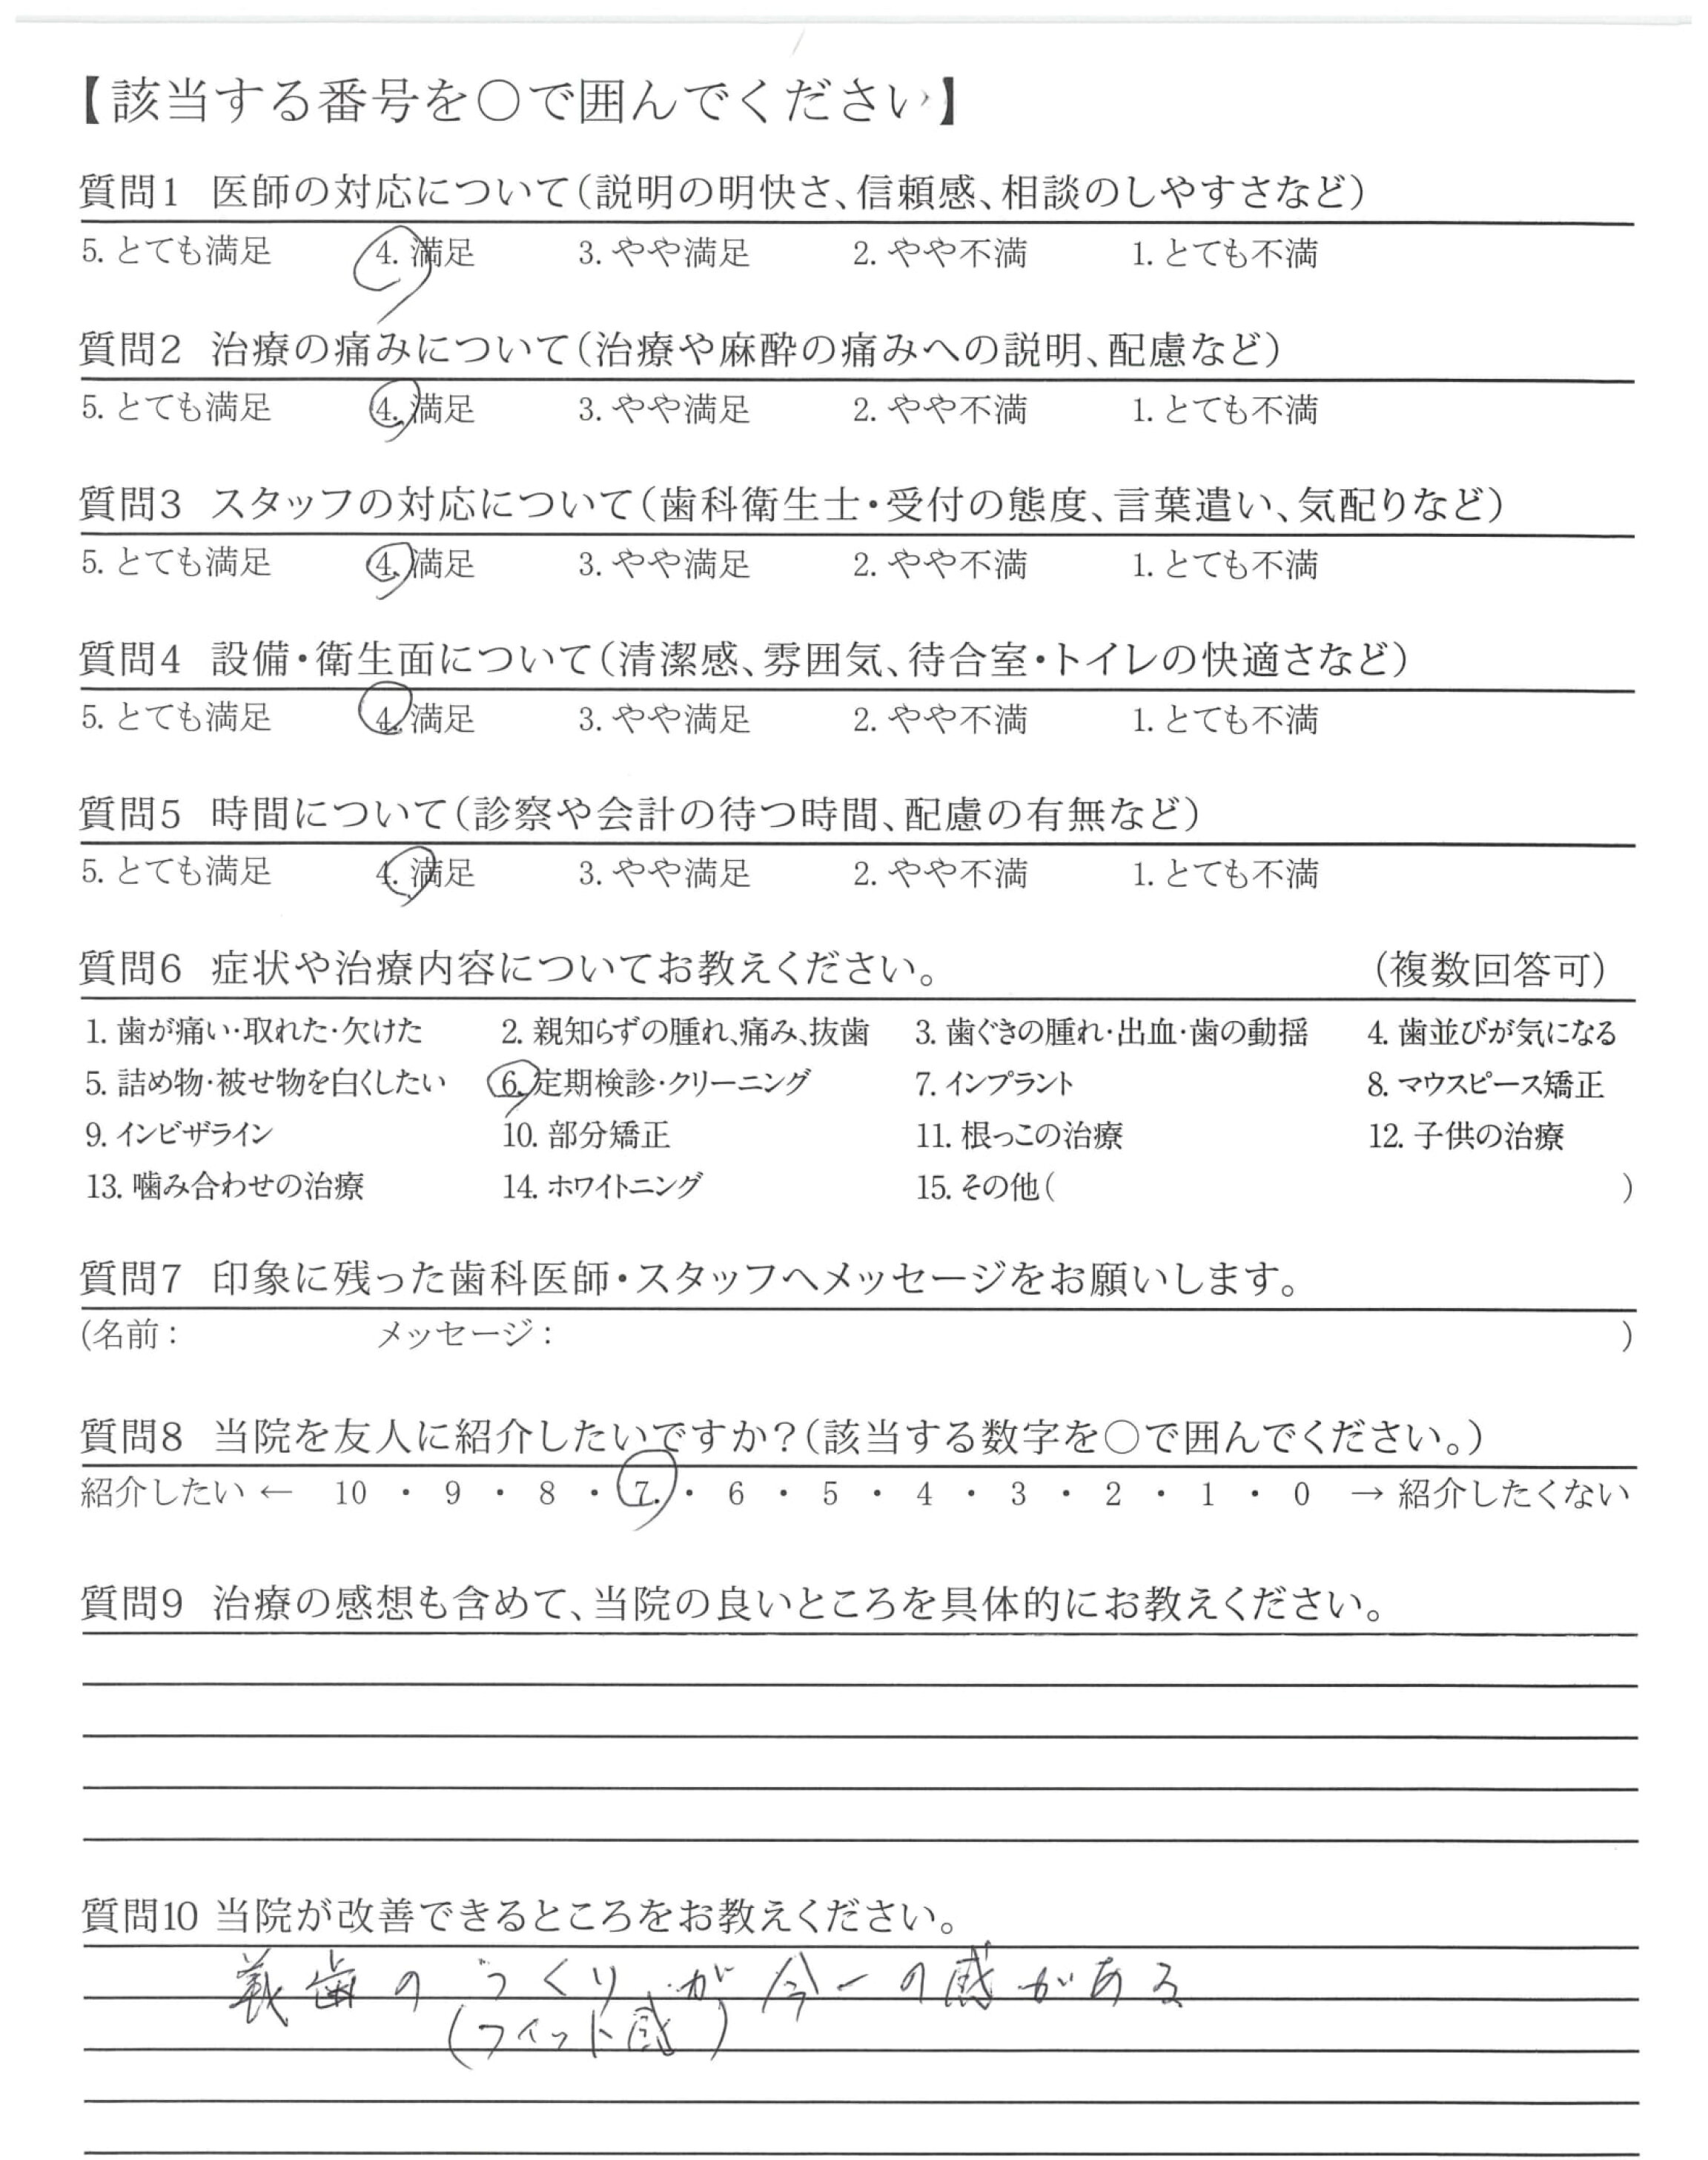 【該当する番号を〇で囲んでください】
質問1 医師の対応について（説明の明快さ、信頼感、相談のしやすさなど）
5. とても満足 4. 満足 3. やや満足 2. やや不満 1. とても不満
質問2 治療の痛みについて（治療や麻酔の痛みへの説明、配慮など）
5. とても満足 4. 満足 3. やや満足 2. やや不満 1. とても不満
質問3 スタッフの対応について（歯科衛生士・受付の態度、言葉遣い、気配りなど）
5. とても満足 4. 満足 3. やや満足 2. やや不満 1. とても不満
質問4 設備・衛生面について（清潔感、雰囲気、待合室・トイレの快適さなど）
5. とても満足 4. 満足 3. やや満足 2. やや不満 1. とても不満
質問5 時間について（診察や会計の待つ時間、配慮の有無など）
5. とても満足 4. 満足 3. やや満足 2. やや不満 1. とても不満
質問6 症状や治療内容についてお教えください。 （複数回答可）
1. 歯が痛い・取れた・欠けた 2. 親知らずの腫れ、痛み、抜歯 3. 歯ぐきの腫れ・出血・歯の動揺 4. 歯並びが気になる
5. 詰め物・被せ物を白くしたい 6. 定期検診・クリーニング 7. インプラント 8. マウスピース矯正
9. インビザライン 10. 部分矯正 11. 根っこの治療 12. 子供の治療
13. 噛み合わせの治療 14. ホワイトニング 15. その他（ ）
質問7 印象に残った歯科医師・スタッフへメッセージをお願いします。
(名前： メッセージ： )
質問8 当院を友人に紹介したいですか？（該当する数字を〇で囲んでください。）
紹介したい ← 10 ・ 9 ・ 8 ・ 7 ・ 6 ・ 5 ・ 4 ・ 3 ・ 2 ・ 1 ・ 0 → 紹介したくない
質問9 治療の感想も含めて、当院の良いところを具体的にお教えください。
質問10 当院が改善できるところをお教えください。
義歯の つくり が 今一の感がある
（フィット感）